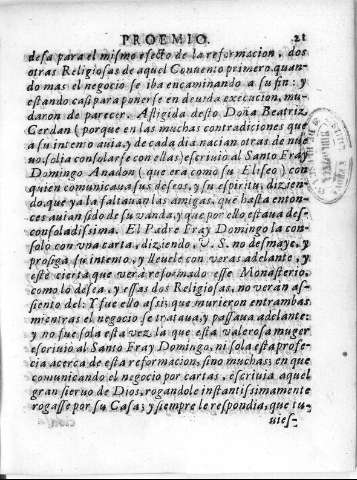 PROEMIO. 21
desa para el mismo efecto de la reformacion, dos
otras Religiosas de aquel Conuento primero quan-
do mas el negocio se iba encaminando a su fin: y
estando casi para ponerse en deuida execucion, mu-
daron de parecer. Afligida desto Doña Beatriz
Cerdan (porque en las muchas contradiciones que
a su intento auia, y de cada dia nacian otras de nue
uo, solia consolarse con ellas) escriuio al Santo Fray
Domingo Anadon (que era como su Eliseo) con
quien comunicaua sus deseos, y su espiritu, dizien-
do, que ya la faltauan las amigas, que hasta enton-
ces auian sido de su vanda, y que por ello estaua des-
consoladissima. El Padre Fray Domingo la con-
solò con vna carta, diziendo, V. S. no desmaye, y
prosiga su intento, y lleuele con veras adelante, y
estè cierta que verà reformado esse Monasterio,
como lo desea, y essas dos Religiosas, no veran as-
siento del: Y fue ello assi; que murieron entrambas
mientras el negocio se trataua, y passaua adelante:
y no fue sola esta vez la que esta valerosa muger
escriuio al Santo Fray Domingo, ni sola esta profe-
cia acerca de esta reformacion, sino muchas; en que
comunicando el negocio por cartas, escriuia aquel
gran sieruo de Dios, rogandole instantissimamente
rogasse por su Casa; y siempre le respondia, que tu-
uies-